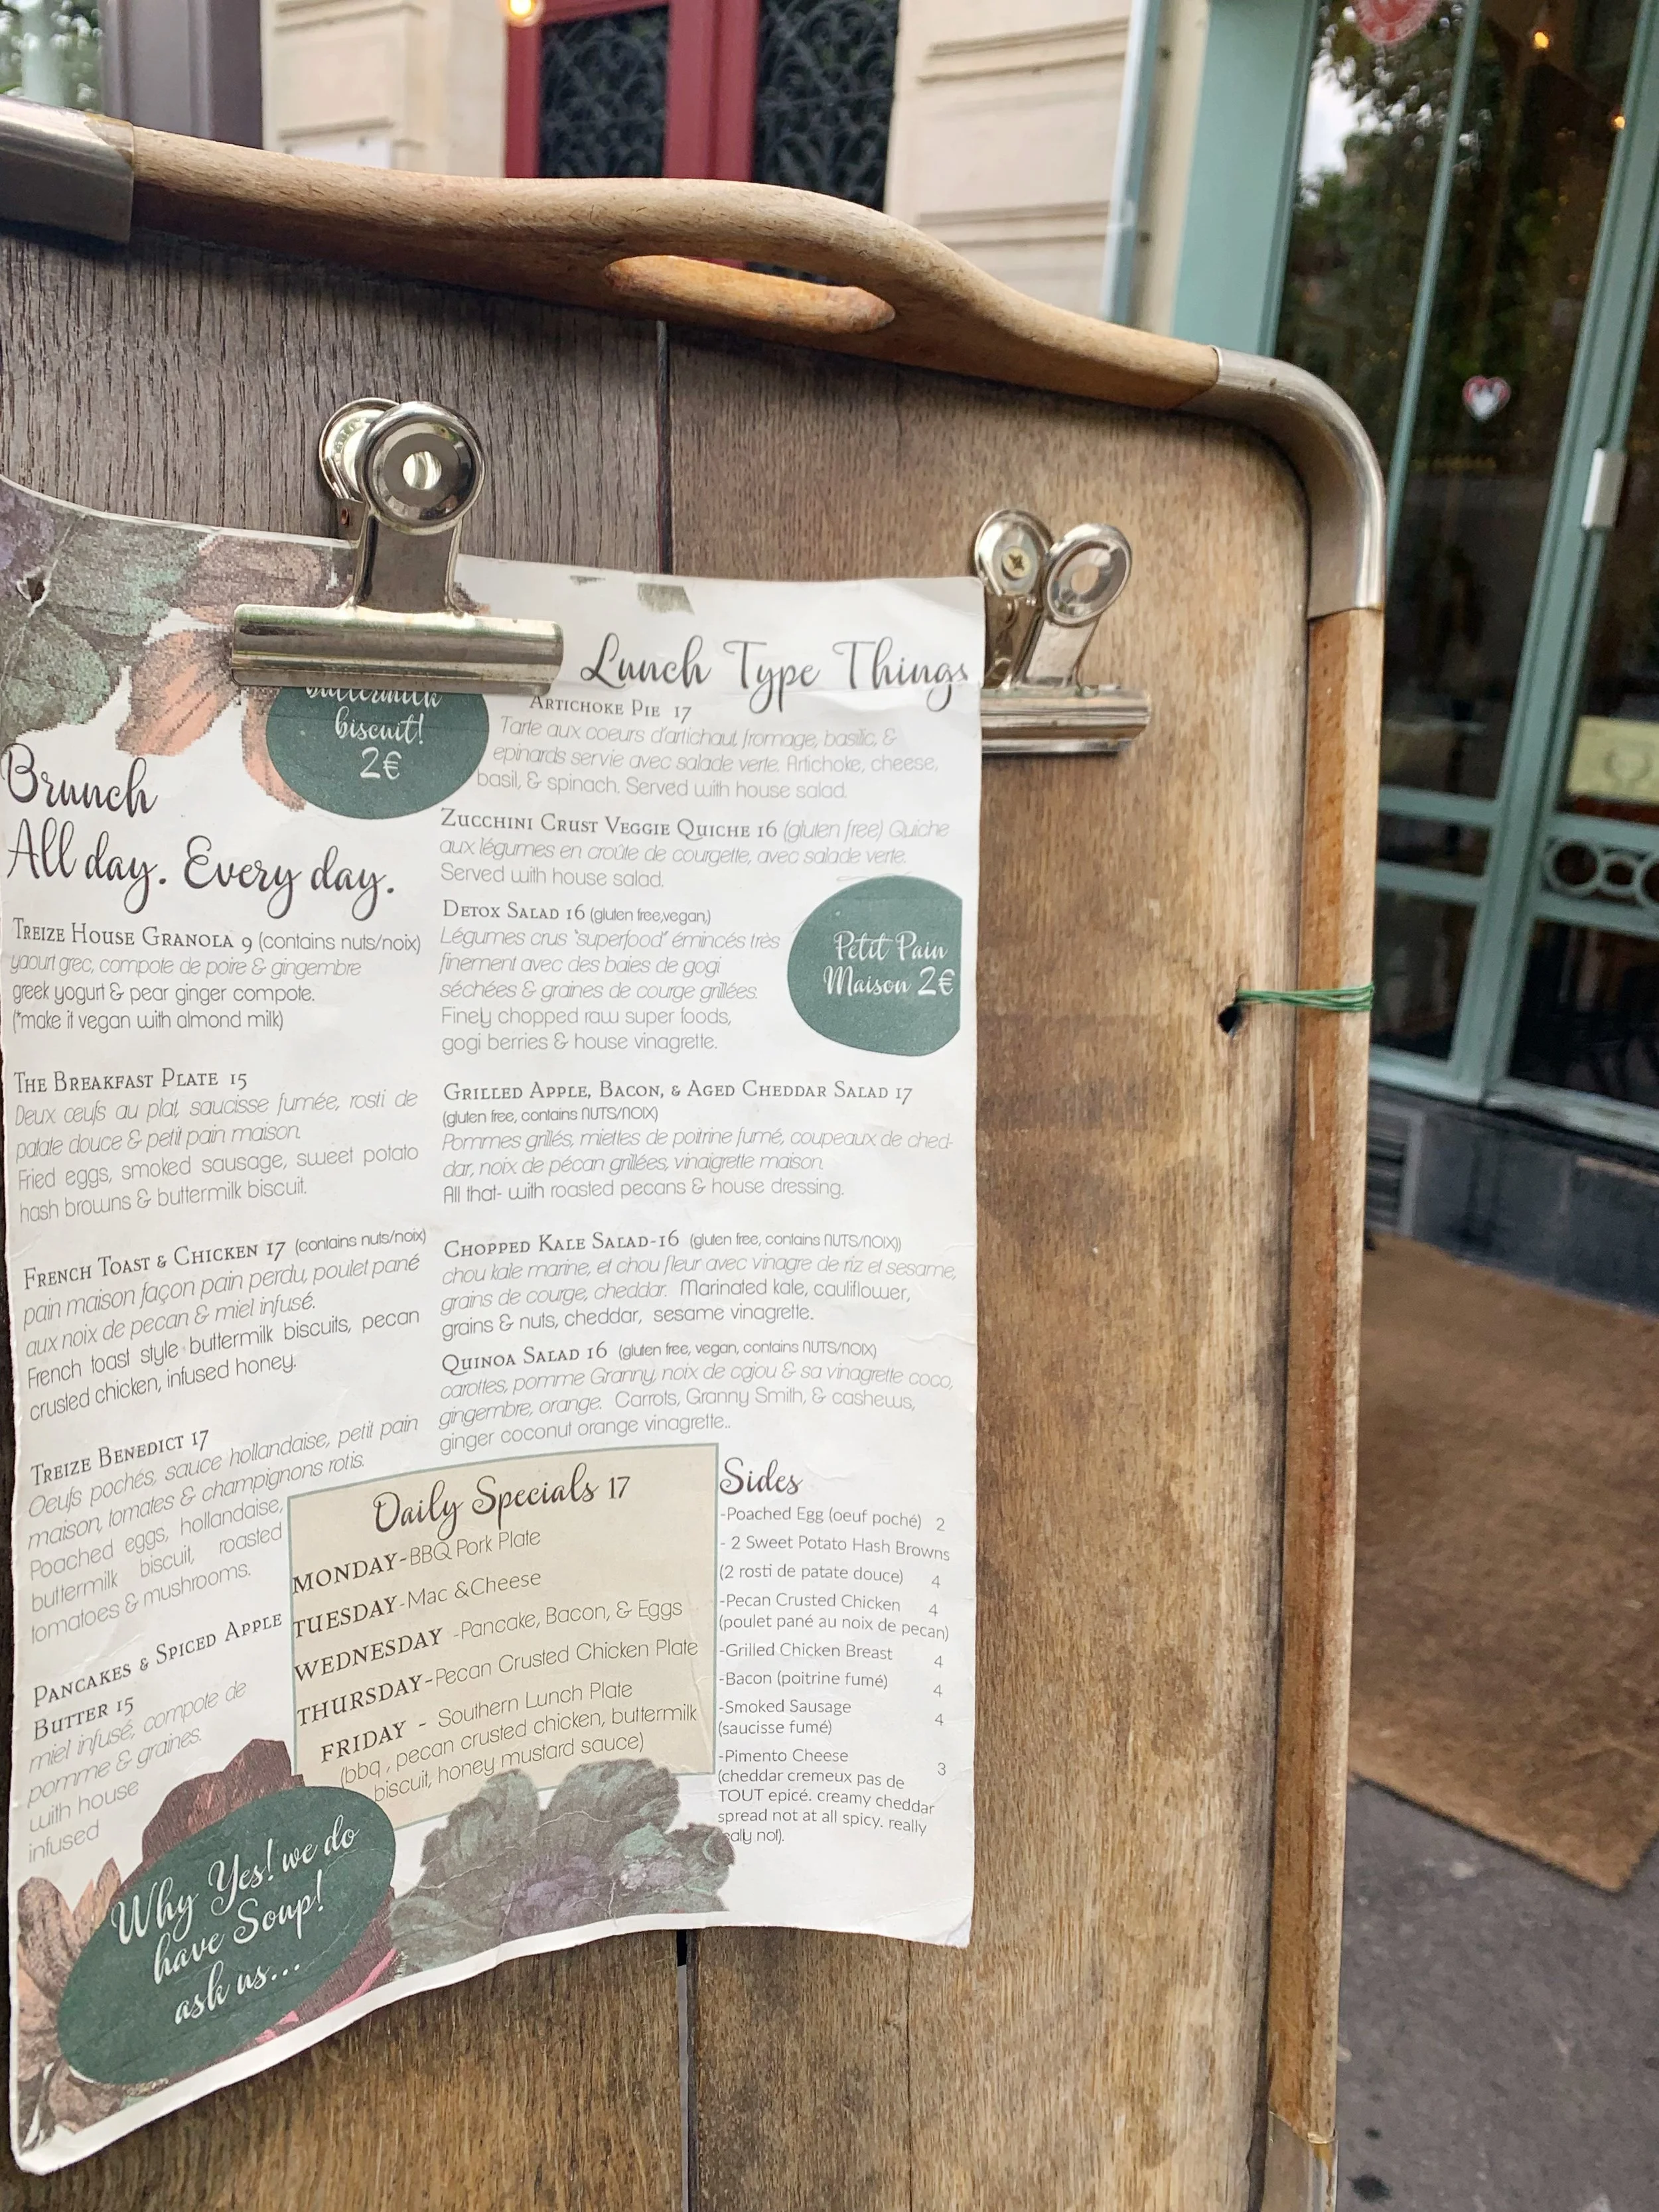 buttermilk
biscuit!
2€
Brunch
All day. Every day.
Treize House Granola 9 (contains nuts/noix)
yaourt grec, compote de poire & gingembre
greek yogurt & pear ginger compote.
(*make it vegan with almond milk)
The Breakfast Plate 15
Deux œufs au plat, saucisse fumée, rosti de
patate douce & petit pain maison.
Fried eggs, smoked sausage, sweet potato
hash browns & buttermilk biscuit.
French Toast & Chicken 17 (contains nuts/noix)
pain maison façon pain perdu, poulet pané
aux noix de pecan & miel infusé.
French toast style buttermilk biscuits, pecan
crusted chicken, infused honey.
Treize Benedict 17
Oeufs pochés, sauce hollandaise, petit pain
maison, tomates & champignons rotis.
Poached eggs, hollandaise,
buttermilk biscuit, roasted
tomatoes & mushrooms.
Pancakes & Spiced Apple
Butter 15
miel infusé, compote de
pomme & graines.
with house
infused
Why Yes! we do
have Soup!
ask us...
Lunch Type Things
Artichoke Pie 17
Tarte aux coeurs d'artichaut, fromage, basilic, &
epinards servie avec salade verte. Artichoke, cheese,
basil, & spinach. Served with house salad.
Zucchini Crust Veggie Quiche 16 (gluten free) Quiche
aux légumes en croûte de courgette, avec salade verte.
Served with house salad.
Detox Salad 16 (gluten free,vegan)
Légumes crus 'superfood' émincés très
finement avec des baies de gogi
séchées & graines de courge grillées.
Finely chopped raw super foods,
gogi berries & house vinagrette.
Petit Pain
Maison 2€
Grilled Apple, Bacon, & Aged Cheddar Salad 17
(gluten free, contains NUTS/NOIX)
Pommes grillés, miettes de poitrine fumé, coupeaux de ched-
dar, noix de pécan grillées, vinaigrette maison.
All that- with roasted pecans & house dressing.
Chopped Kale Salad-16 (gluten free, contains NUTS/NOIX))
chou kale marine, et chou fleur avec vinagre de riz et sesame,
grains de courge, cheddar. Marinated kale, cauliflower,
grains & nuts, cheddar, sesame vinagrette.
Quinoa Salad 16 (gluten free, vegan, contains NUTS/NOIX)
carottes, pomme Granny, noix de cajou & sa vinagrette coco,
gingembre, orange. Carrots, Granny Smith, & cashews,
ginger coconut orange vinagrette..
Daily Specials 17
MONDAY-BBQ Pork Plate
TUESDAY-Mac &Cheese
WEDNESDAY -Pancake, Bacon, & Eggs
THURSDAY-Pecan Crusted Chicken Plate
FRIDAY - Southern Lunch Plate
(bbq , pecan crusted chicken, buttermilk
biscuit, honey mustard sauce)
Sides
-Poached Egg (oeuf poché) 2
- 2 Sweet Potato Hash Browns
(2 rosti de patate douce) 4
-Pecan Crusted Chicken 4
(poulet pané au noix de pecan)
-Grilled Chicken Breast 4
-Bacon (poitrine fumé) 4
-Smoked Sausage 4
(saucisse fumé)
-Pimento Cheese 3
(cheddar cremeux pas de
TOUT epicé. creamy cheddar
spread not at all spicy. really
eally not).